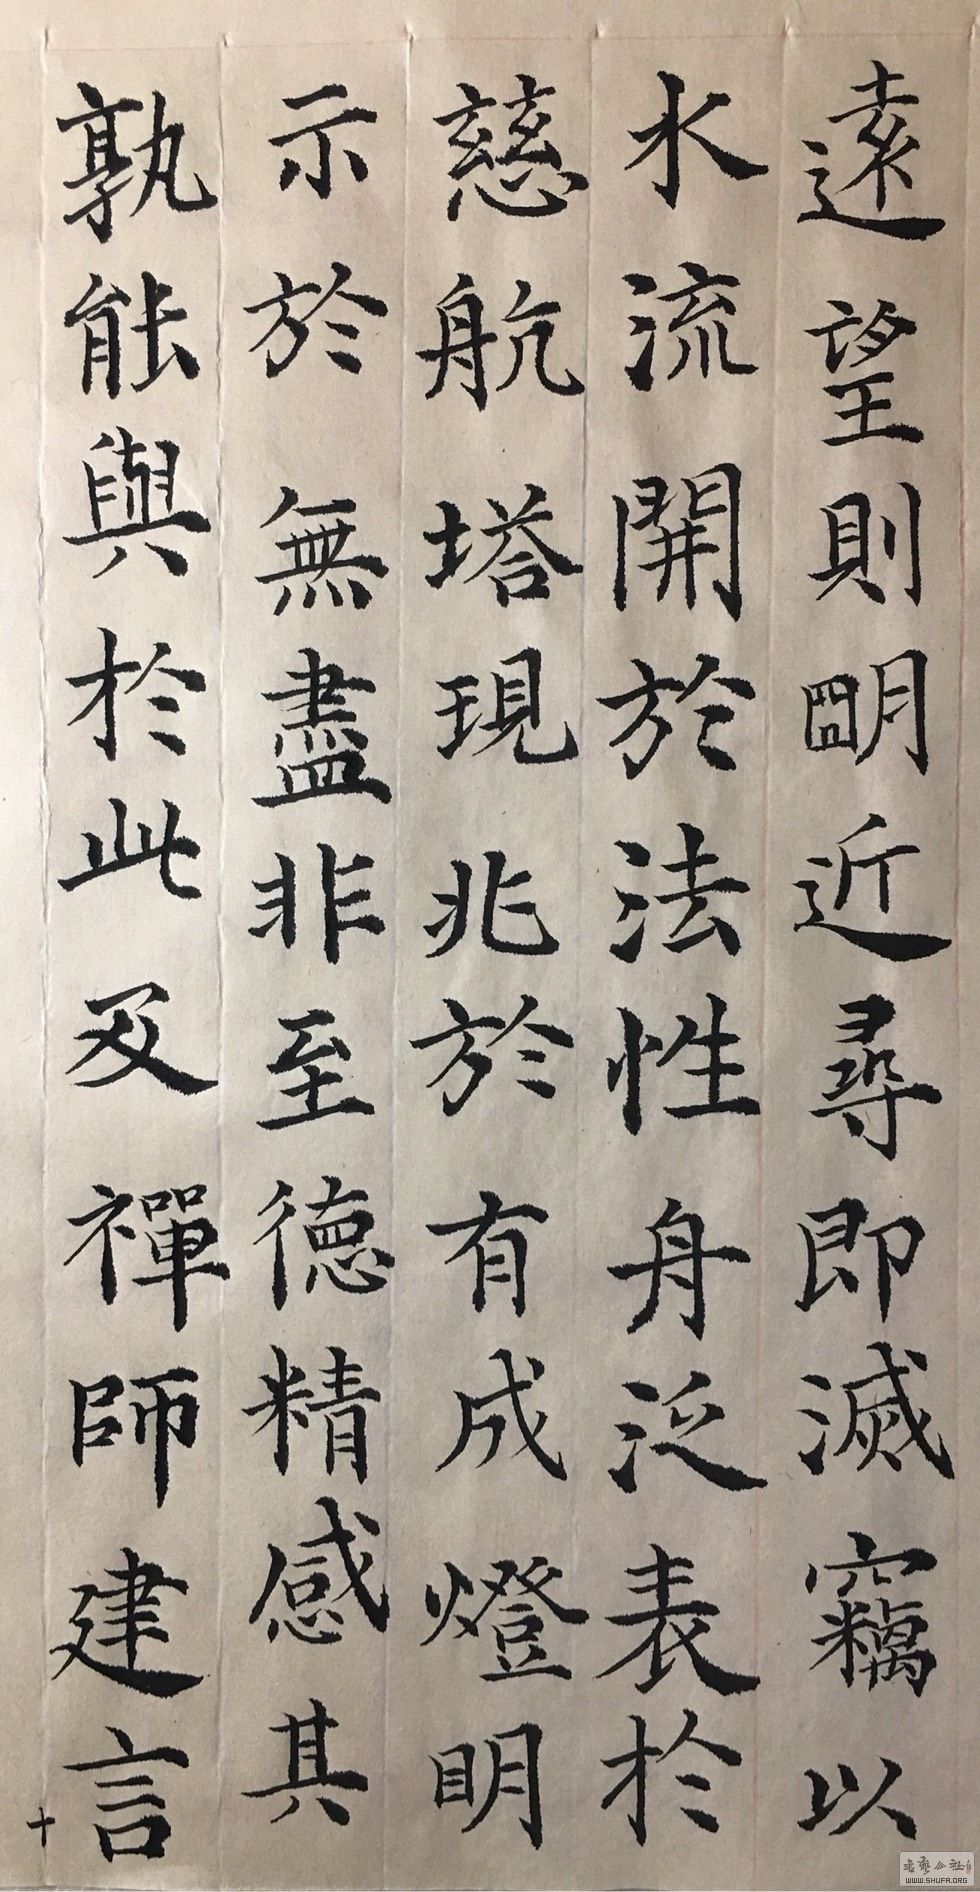 遠望則明近尋即滅竊以
水流開於法性舟泛表於
慈航塔現兆於有成燈明
示於無盡非至德精感其
孰能與於此及禪師建言
十
書藝公社
WWW.SHUFA.ORG